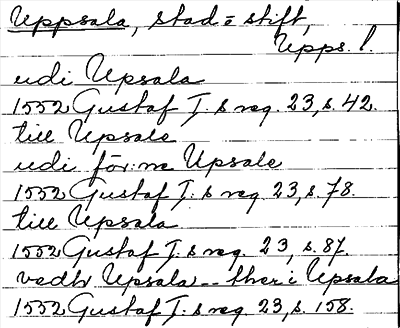 Uppsala, stad o stift,
Upps. l.
udi Upsala
1552 Gustaf I:s reg. 23, s. 42.
till Upsale
udi för:ne Upsale
1552 Gustaf I:s reg. 23, s. 78.
till Upsala
1552 Gustaf I:s reg. 23, s. 87.
vedh Upsala -- ther i Upsala
1552 Gustaf I:s reg. 23, s. 158.